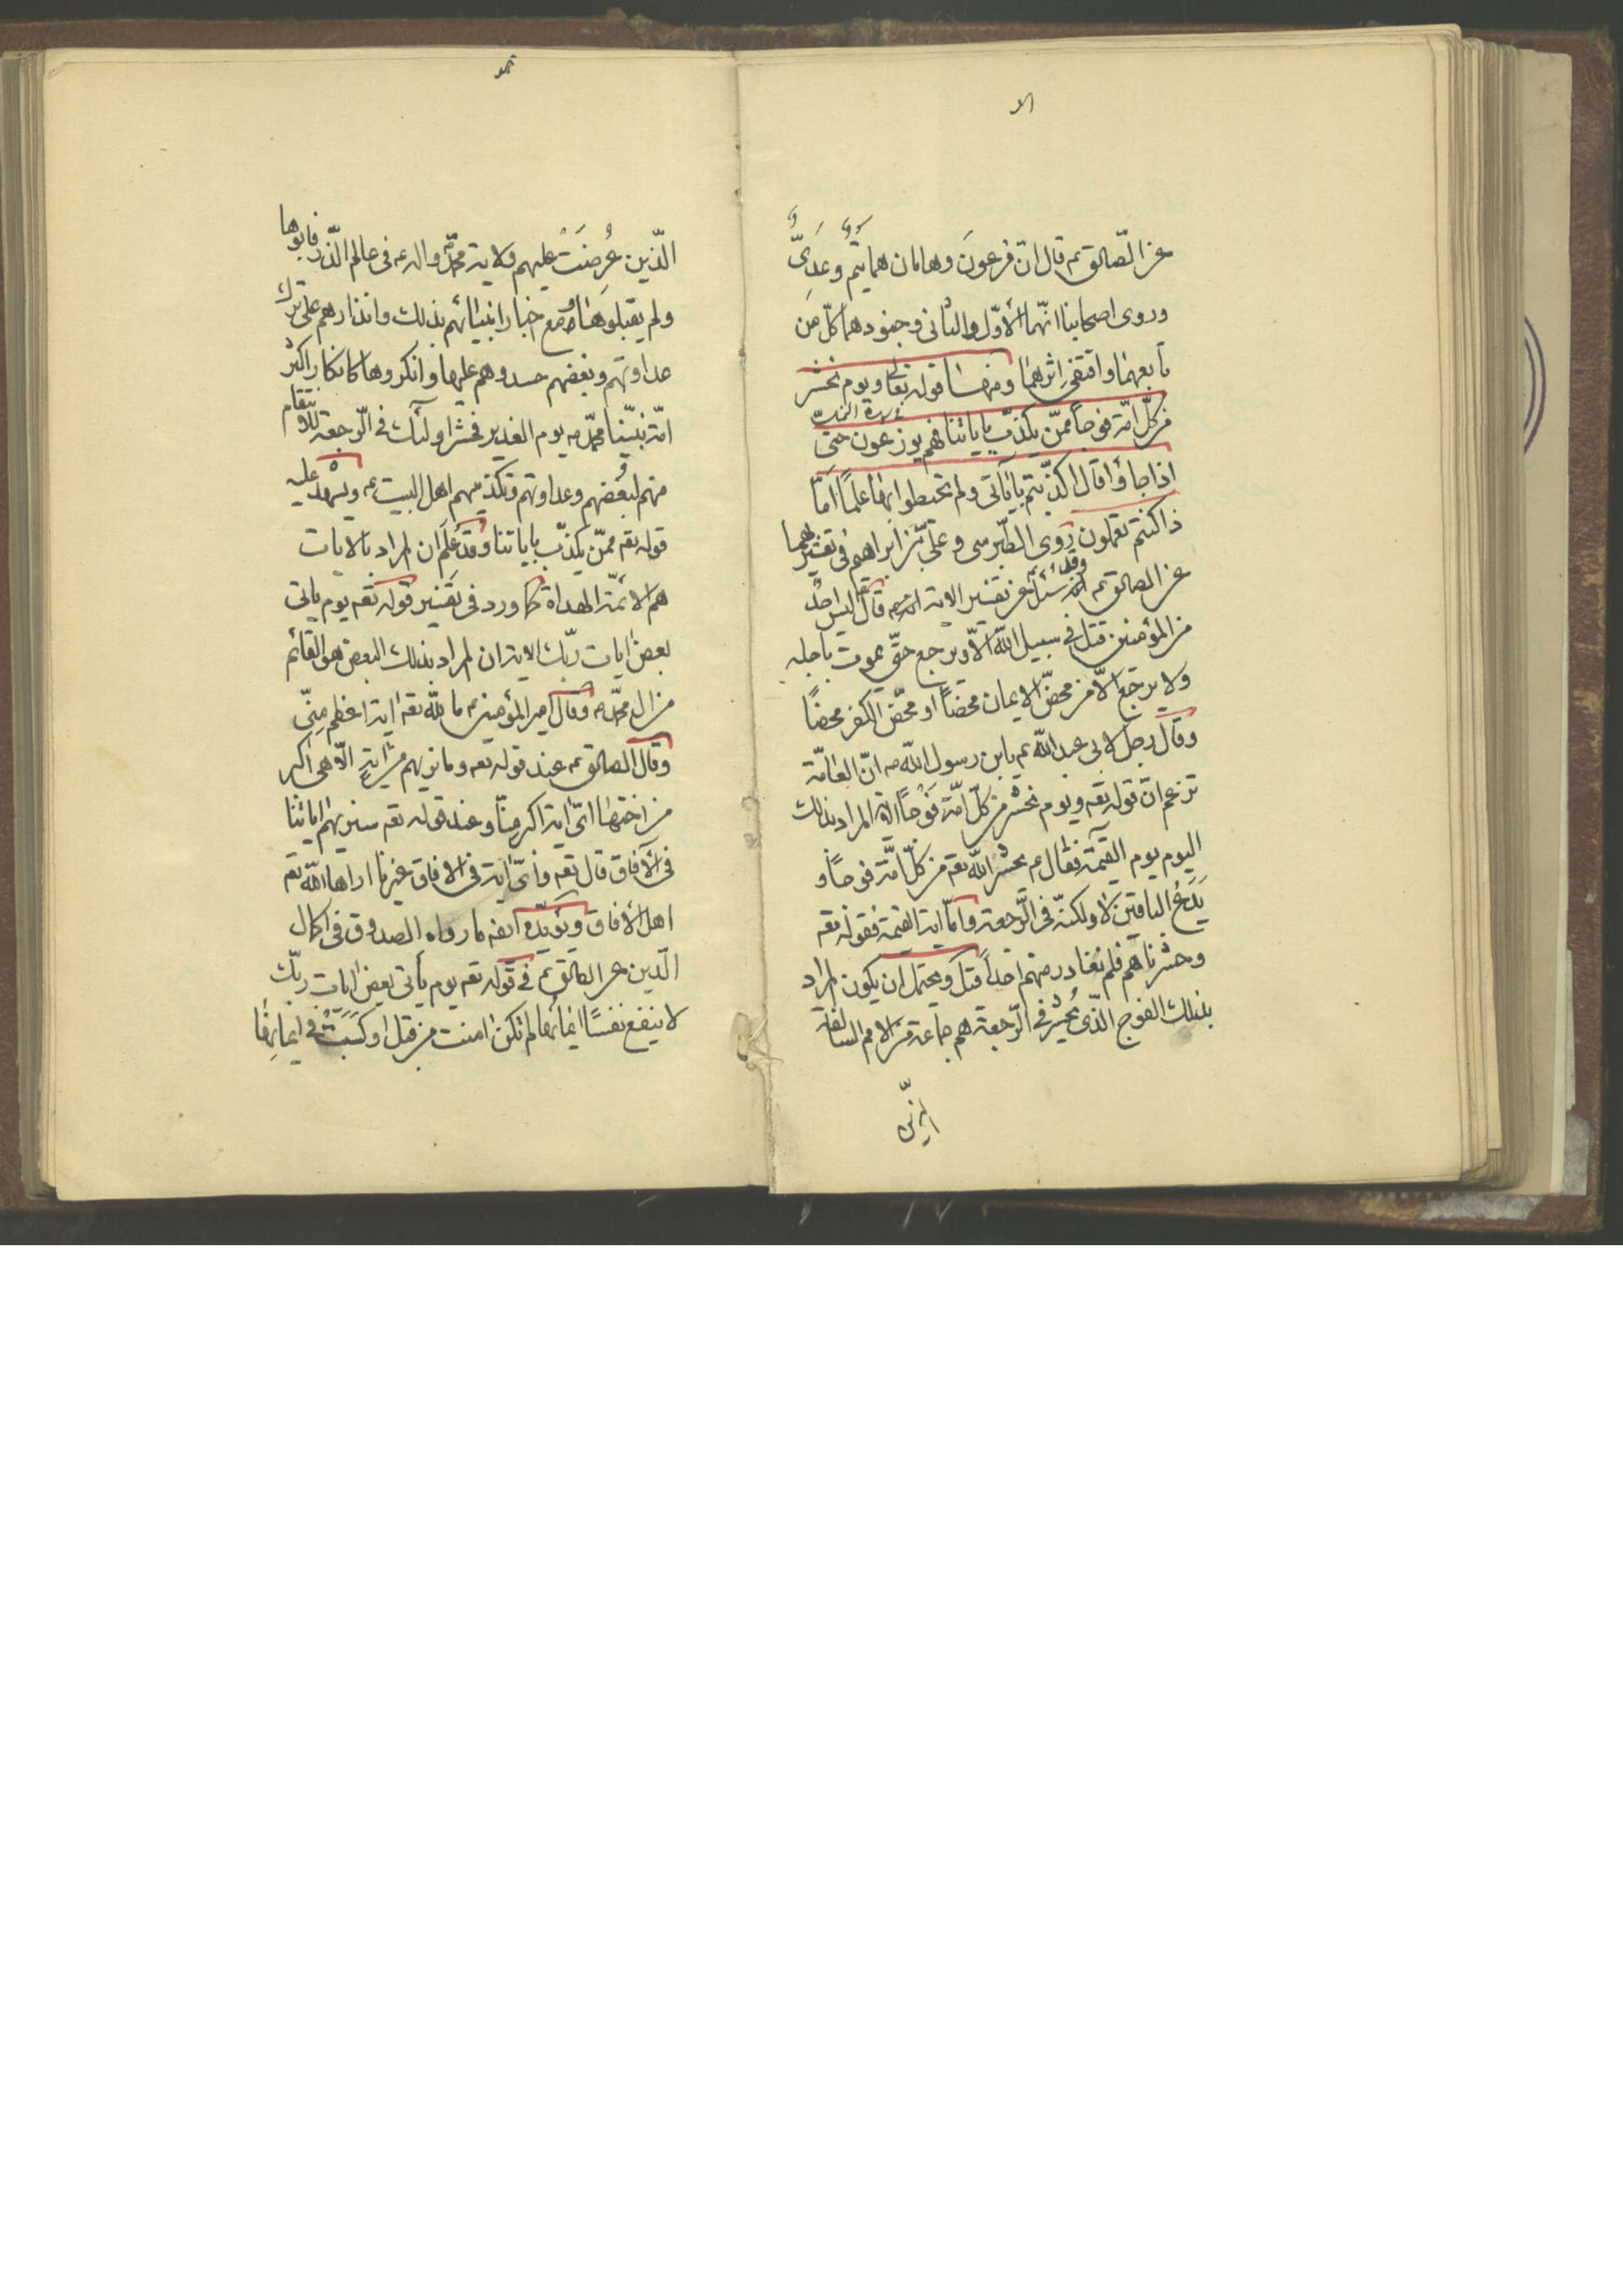 عن الصّادق ع قال انّ فرعون وهامان هما تيم وعدىّ
وروى اصحابنا انّهما الأوّل والثانى وجنودهما كلّ من
تابعهما واقتفى اثرهما ومنها قوله تعالى ويوم نحشر
من كلّ امّة فوجاً ممّن يكذّب باياتنا فهم يوزعون حتى
اذا جاؤا قال اكذّبتم باياتى ولم تحيطوا بها علماً امّا
ذا كنتم تعملون روى الطبرسى وعلىّ بن ابراهيم فى تفسيرهما
عن الصادق ع وقد سئل عن تفسير الاية قال ليس احد
من المؤمنين قتل فى سبيل الله الّا ويرجع حتّى يموت باجله
ولا يرجع الّا من محض الايمان محضاً او محّض الكفر محضاً
وقال رجل لابى عبد الله ع يابن رسول الله ص انّ العامّة
تزعم انّ قوله تعه ويوم نحشر من كلّ امّة فوجاً المراد بذلك
اليوم يوم القيمة فقال ع يحشر الله تعه من كلّ امّة فوجاً و
يدع الباقين لا ولكنّه فى الرّجعة وامّا اية القيمة فقوله تعه
وحشرناهم فلم نغادر منهم احداً قتل ويحتمل ان يكون المراد
بذلك الفوج الذّى يحشر فى الرّجعة هم جماعة من الامم السالفة
الذّين
الذّين عُرِضَتْ عليهم ولاية محمّد واله ع فى عالم الذّر فابوها
ولم يقبلوها مع اخبار انبيائهم بذلك وانذارهم على ترك
عداوتهم وبغضهم حسدوهم عليها وانكروها كانكار اكثر
امّة نبيّنا محمّد ص يوم الغدير فحشر اولئك فى الرّجعة للانتقام
منهم لبُغضهم وعداوتهم وتكذيبهم اهل البيت ع ويشهد عليه
قوله تعه ممّن يكذّب باياتنا وقد عُلِم ان المراد بالايات
هم الائمّة الهداة كما ورد فى تفسير قوله تعه يوم ياتى
بعض ايات ربّك الاية ان المراد بذلك البعض هو القائم
من ال محمّد ص وقال امير المؤمنين ع ما لله تعه اية اعظم منّى
وقال الصادق ع عند قوله تعه وما نريهم من اية الّا هى اكبر
من اختها اىّ اية اكبر منّا وعند قوله تعه سنريهم اياتنا
فى الآفاق قال تعه واىّ اية فى الافاق غيرنا اراها الله تعه
اهل الأفاق ويؤيّده ايضه ما رواه الصدوق فى اكمال
الدّين عن الصادق ع فى قوله تعه يوم يأتى بعض ايات ربّك
لا ينفع نفسًا ايمانها لم تكن امنت من قبل او كسَبَتْ فى ايمانها